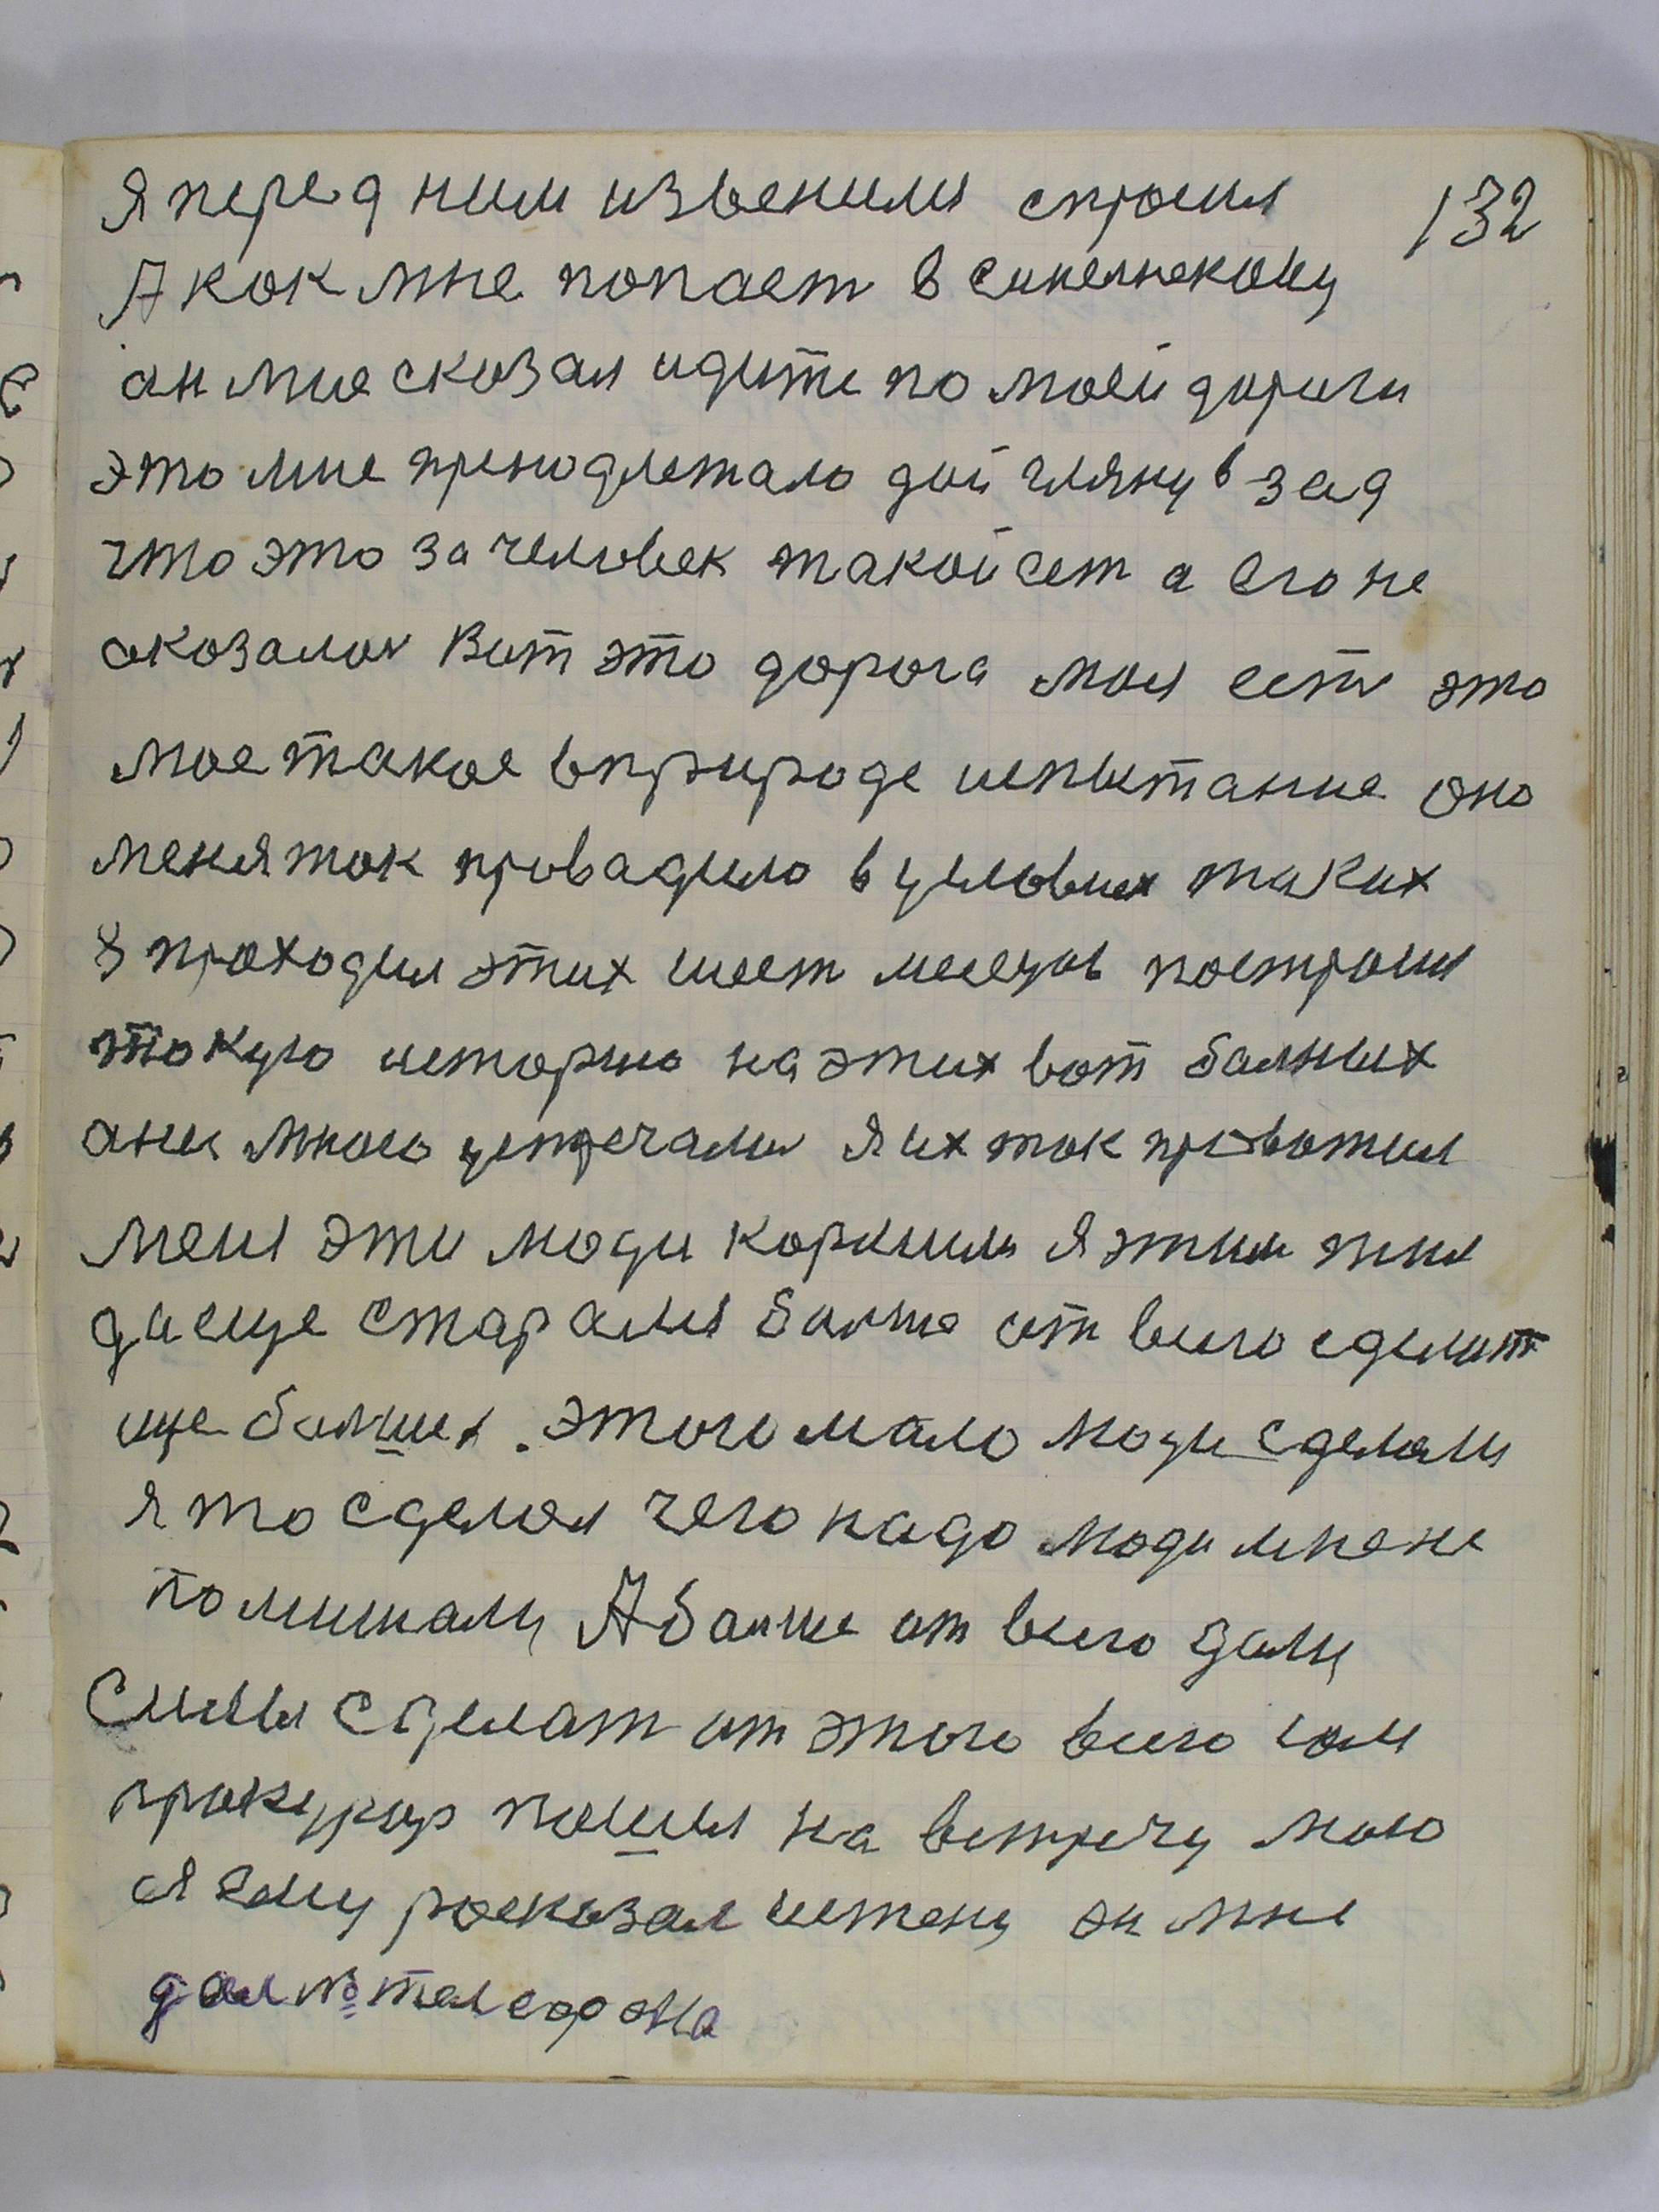 Я перед ним извенился спросил 132
А как мне попаст в синелнекову
ан мне сказал идите по моей дороги
это мне преподлетало дай гляну в зад
что это за человек такой ест а его не
аказалос Вот это дорога моя есть это
мое такое в природе испытание оно
меня так правадило в условиях таких
Я праходил этих шест месецов построил
такую историю на этих вот балных
ани мною устречалис я их так правотил
меня эти люди кормили я этим жил
да еще старался балше от всего сделат
ище балших. этого мало люди сделали
я то сделал чего надо люди мне не
помишали, А балше от всего дали,
Смысл сделат от этого всего сам
пракурор пошел на встречу мою
я ему росказал истену он мне
дал № телефона